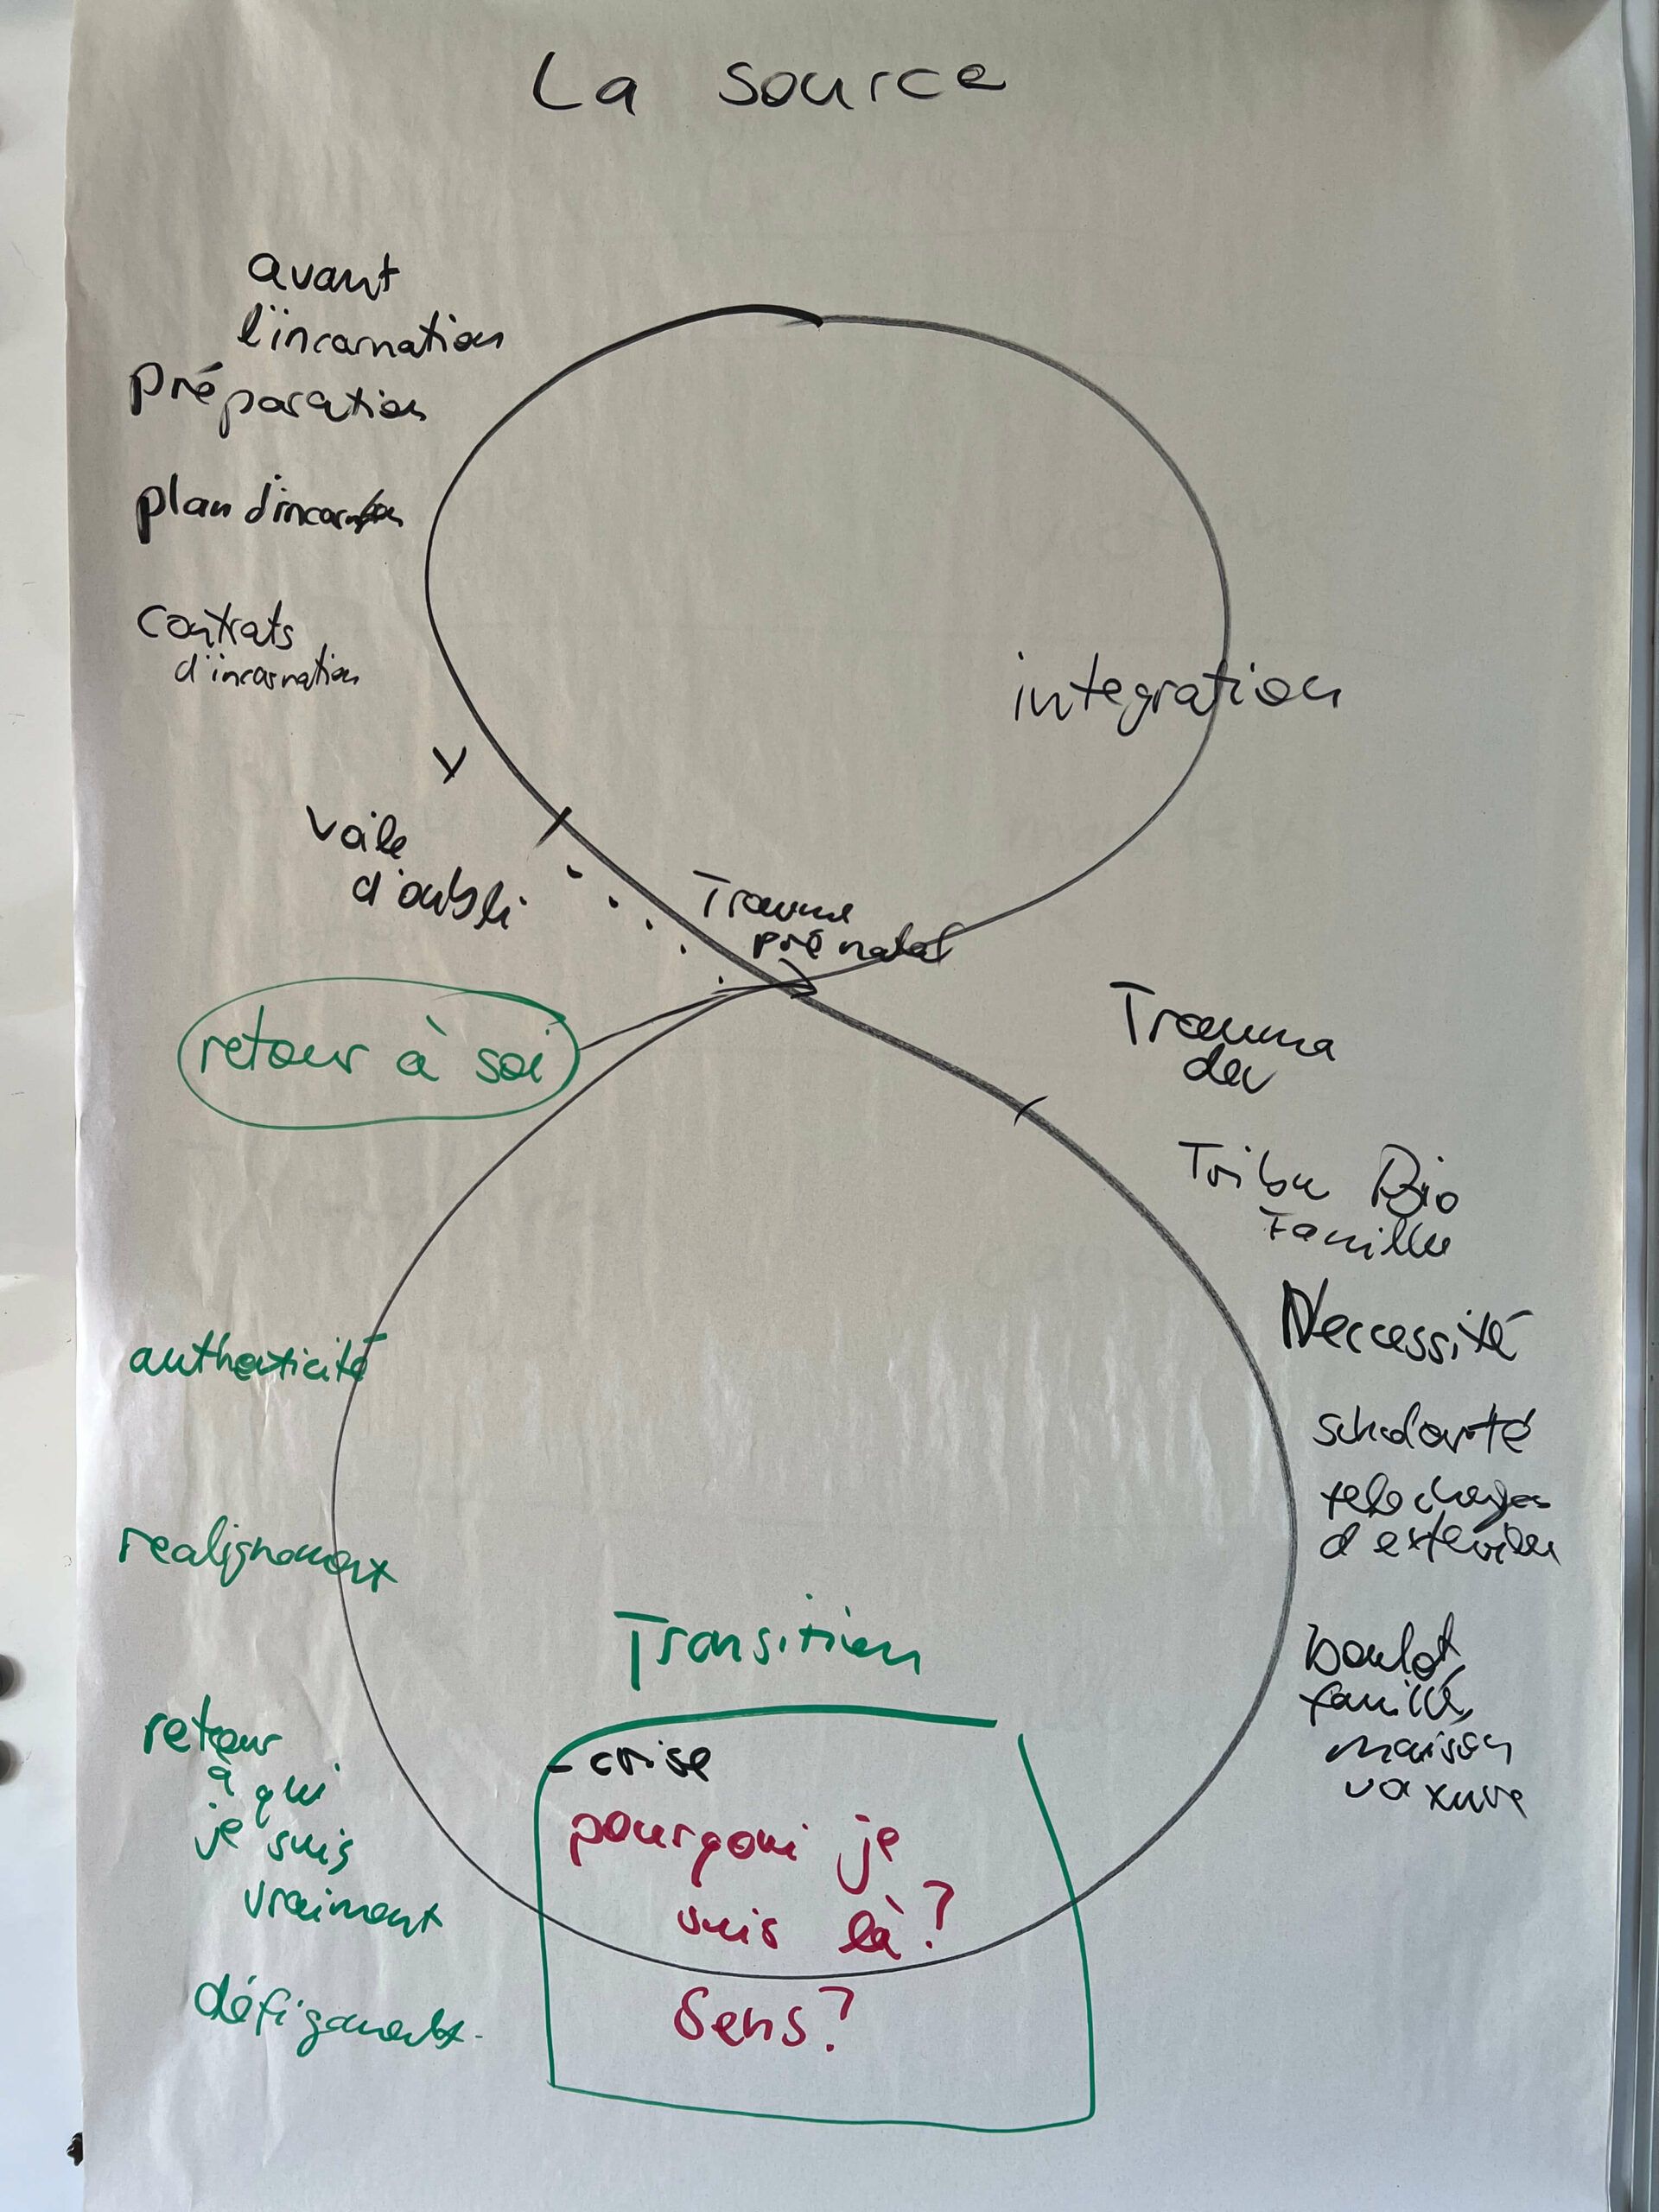 La source
avant
l'incarnation
préparation
plan d'incarnation
contrats
d'incarnation
integration
voile
d'oubli
Trauma
prénatal
retour à soi
Trauma
dev
Tribu Bio
Famille
Neccessité
authenticité
d'exterieur
realignement
Transition
Boulot,
famille,
maison
retour
à qui
je suis
vraiment
- crise
pourquoi je
suis là?
Sens?